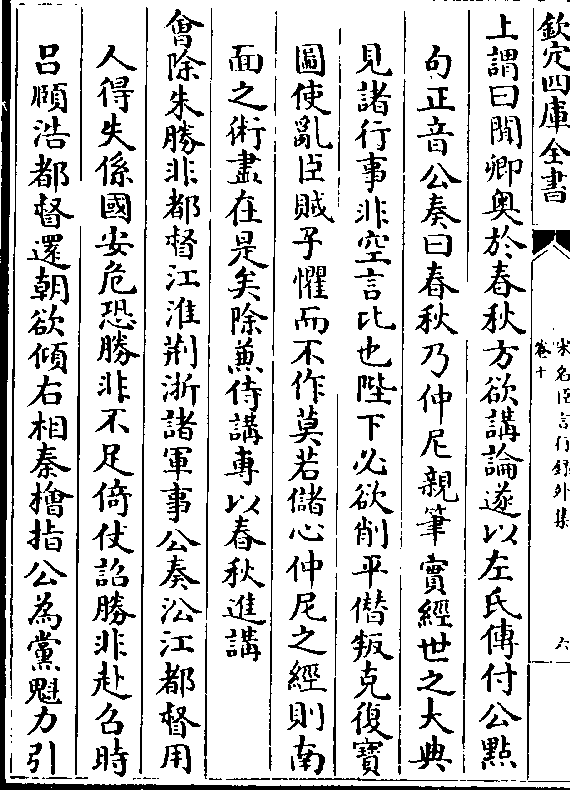 欽定四庫全書
宋名臣言行録外集
卷十
六
上謂曰聞卿奥於春秋方欲講論遂以左氏傳付公點
句正音公奏曰春秋乃仲尼親筆實經世之大典
見諸行事非空言比也陛下必欲削平僭叛克復寳
圖使亂臣賊子懼而不作莫若儲心仲尼之經則南
面之術盡在是矣除兼侍講專以春秋進講
會除朱勝非都督江淮荆浙諸軍事公奏㳂江都督用
人得失係國安危恐勝非不足倚仗詔勝非赴召時
吕頤浩都督還朝欲傾右相秦檜指公為黨魁力引